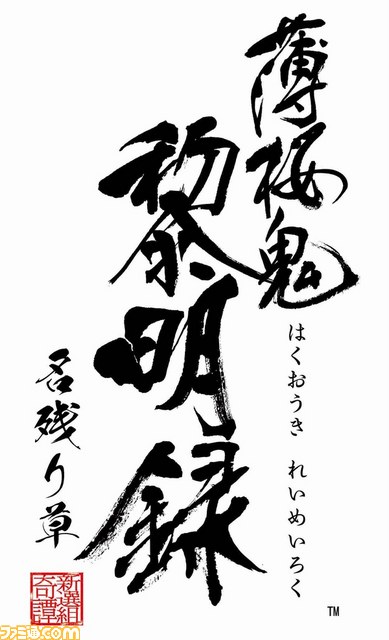 薄桜鬼
黎明録
はくおうき れいめいろく
名残り草
新選組
奇譚
TM
ファミ通.com